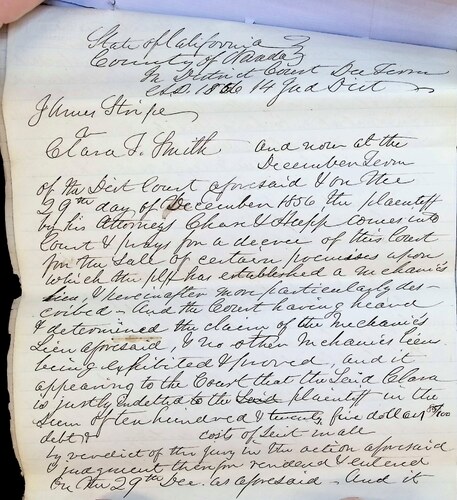 State of California
County of Nevada
In District Court Dec Term
A.D. 1856 14 Jud Dist
James Stripe
vs
Clara F. Smith and now at the
December Term
of the Dist Court aforesaid & on the
29th day of December 1856 the plaintiff
by his Attorneys & Hupp comes into
Court & prays for a decree of this Court
for the Sale of certain premises upon
which the plff has established a mechanic's
lien, & hereinafter more particularly des-
cribed - And the Court having heard
& determined the claim of the Mechanic's
Lien aforesaid, & no other Mechanics lien
being exhibited & proved, and it
appearing to the Court that the Said Clara
is justly Indebted to the said plaintiff in the
Sum of ten hundred & twenty five dollars /100
debt & costs of Suit in all
by verdict of the Jury in the action aforesaid
& judgment therefor rendered & entered
on the 29th Dec. as aforesaid - And it